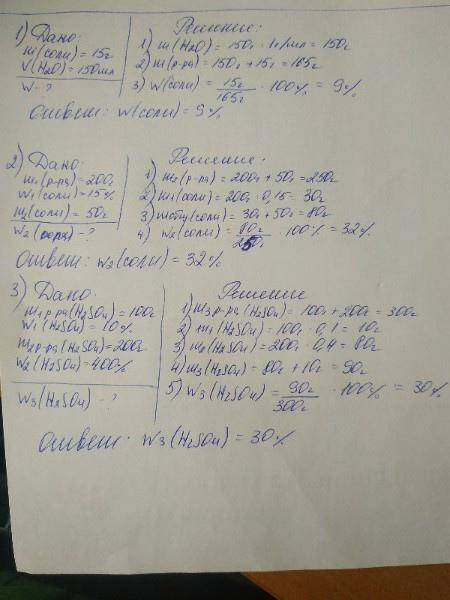 1) Дано:
m(соли) = 15г
V(H2O) = 150мл
W - ?
Решение:
1) m(H2O) = 150г · 1г/мл = 150г
2) m(р-ра) = 150г + 15г = 165г
3) W(соли) = 15г/165г · 100% = 9%
Ответ: W(соли) = 9%
2) Дано:
m1(р-ра) = 200г
W1(соли) = 15%
m2(соли) = 50г
W2 - ?
Решение:
1) m2(р-ра) = 200г + 50г = 250г
2) m1(соли) = 200г · 0,15 = 30г
3) mобщ(соли) = 30г + 50г = 80г
4) W2(соли) = 80г/250г · 100% = 32%
Ответ: W2(соли) = 32%
3) Дано:
m1 р-ра(H2SO4) = 100г
W1(H2SO4) = 10%
m2 р-ра(H2SO4) = 200г
W2(H2SO4) = 400%
W3(H2SO4) - ?
Решение
1) m3 р-ра(H2SO4) = 100г + 200г = 300г
2) m1(H2SO4) = 100г · 0,1 = 10г
3) m2(H2SO4) = 200г · 0,4 = 80г
4) m3(H2SO4) = 80г + 10г = 90г
5) W3(H2SO4) = 90г/300г · 100% = 30%
Ответ: W3(H2SO4) = 30%